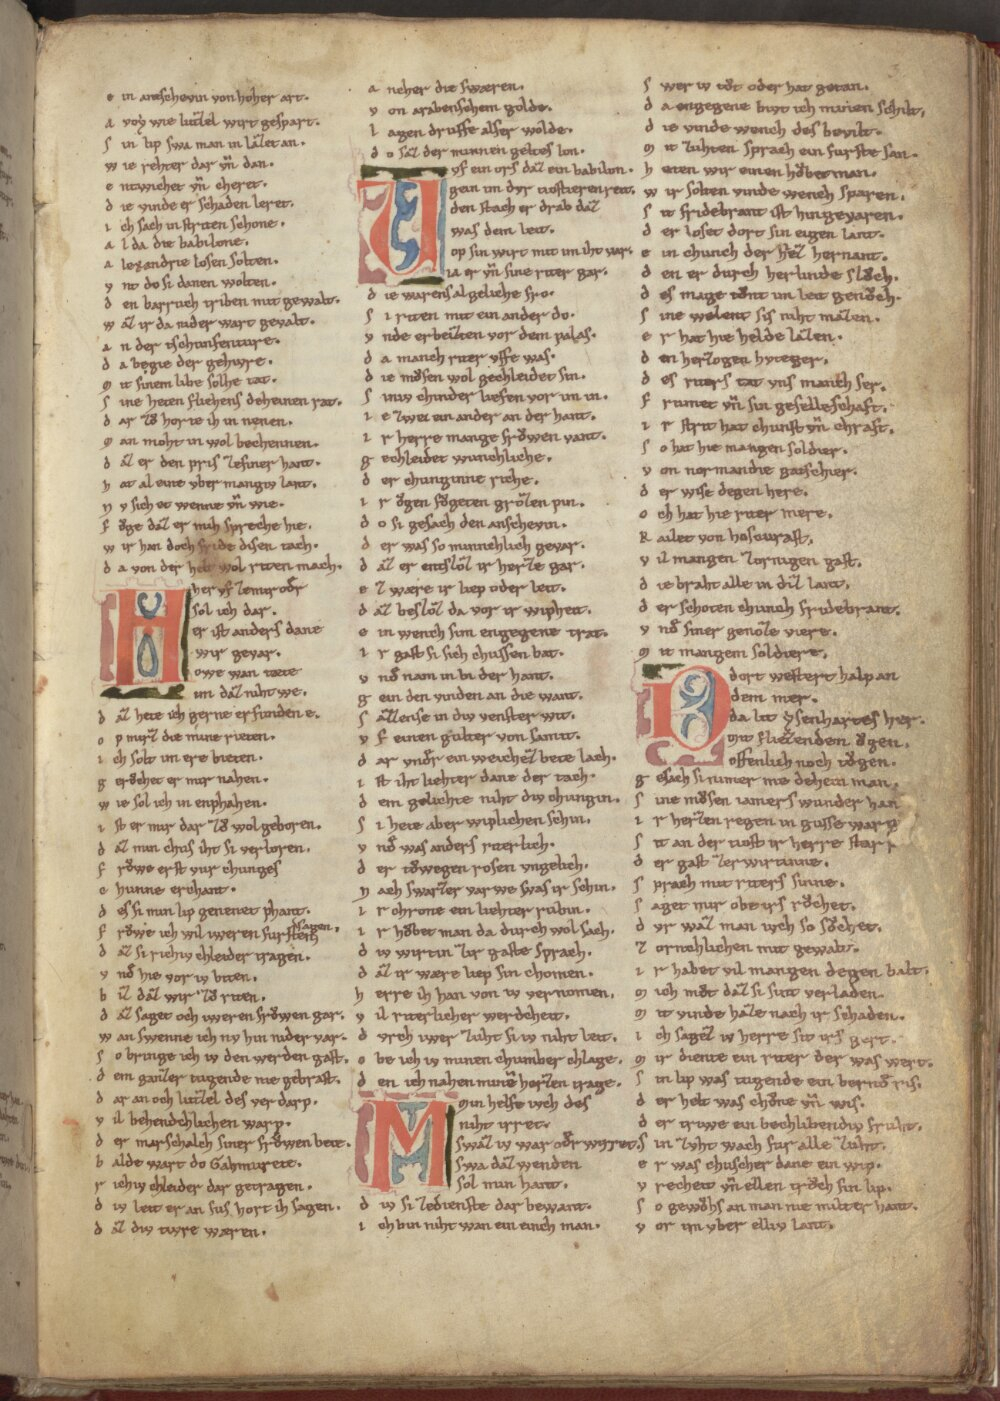 ein antscheuin von hoher art.
avoy wie lutzel wirt gespart.
sin lip swa man in lazet an.
wie rehter dar vn dan.
entwichet vn cheret.
die vinde er schaden leret.
ich sach in striten schone.
alda die babilone.
alexandrie losen solten.
vnt do si danen wolten.
den barruch triben mit gewalt.
waz ir da nider wart gevalt.
an der tschunfenture.
da begie der gehivre.
mit sinem libe solhe tat.
sine heten fliehens deheinen rat.
dar zv horte ih in nenen.
man moht in wol bechennen.
daz er den pris ze siner hant.
hat al eine vber mangiv lant.
nv sich et wenne vn wie.
fvge daz er mih spreche hie.
wir han doch fride disen tach.
da von der helt wol riten mach.
her vf ze mir odr
sol ich dar.
er ist anders dane
wir gevar.
owe wan tæte
im daz niht we.
daz hete ich gerne erfunden e.
op mirz die mine rieten.
ich solt im ere bieten.
gerochet er mir nahen.
wie sol ich in enphahen.
ist er mir dar zv wol geborn.
daz min chus iht si verloren.
frowe erst vur chunges
chunne erchant.
des si min lip genenet phant.
frowe ich wil iweren fursten sagen.
daz si richiv chleider tragen.
vnd hie vor iv biten.
biz daz wir zv riten.
daz saget och iweren frowen gar.
wan swenne ich nv hin nider var.
so bringe ich iv den werden gast.
dem gantzer tugende nie gebrast.
dar an och lutzel des verdarp.
vil behendechlichen warp.
der marschalch siner frowen bete.
balde wart do Gahmurete.
richiv chleider dar getragen.
div leit er an sus hort ih sagen.
daz div tiwre wæren.
aneher die swæren.
von arabenschem golde.
lagen druffe alser wolde.
do saz der minnen geltes lon.
vf ein ors daz ein babilon.
gein im dvr tiostieren reit.
den stach er drab daz
was dem leit.
op sin wirt mit im iht var.
ia er vn sine riter gar.
die warens al geliche fro.
si riten mit ein ander do.
vnde erbeizten vor dem palas.
da manch riter vffe was.
die mvsen wol gechleidet sin.
siniv chinder liefen vor im in.
ie zwei ein ander an der hant.
ir herre mange frowen vant.
gechleidet wunchliche.
der chunginne riche.
ir ogen fogeten grozen pin.
do si gesach den anschevin.
der was so minnchlich gevar.
daz er entsloz ir herze gar.
ez wære ir liep oder leit.
daz besloz da vor ir wipheit.
ein wench sim engegene trat.
ir gast si sich chussen bat.
vnd nam in bi der hant.
gein den vinden an die want.
sazens in div venster wit.
vf einen gulter von samit.
dar vnder ein weichez bete lach.
ist iht liehter dane der tach.
dem gelichte niht div chungin.
si hete aber wiplichen schin.
vnd was anders riterlich.
der towegen rosen vngelich.
nach swarzer varwe was ir schin.
ir chrone ein liehter rubin.
ir hobet man da durch wol sach.
div wirtin zir gaste sprach.
daz ir wære liep sin chomen.
herre ih han von iv vernomen.
vil riterlicher werdcheit.
dvrch iwer zuht si iv niht leit.
obe ich iv minen chumber chlage.
den ich nahen mime herzen trage.
min helfe iwch des
niht irret.
swaz iv war odr wirret.
swa daz wenden
sol min hant.
div si ze dienste dar bewant.
ich bin niht wan ein einch man.
swer iv tot oder hat getan.
da engegene biut ich minen schilt.
die vinde wench des bevilt.
mit zuhten sprach ein furste san.
heten wir einen hobet man.
wir solten vinde wench sparen.
sit fridebrant ist hin gevaren.
der loset dort sin eigen lant.
ein chunch der hez hernant.
den er durch herlinde sloch.
des mage tont im leit genoch.
sine welent sis niht mazen.
er hat hie helde lazen.
den herzogen hvteger.
des riters tat vns manch ser.
frumet vn sin geselleschaft.
ir strit hat chunst vn chraft.
so hat hie mangen soldier.
von normandie gatschier.
der wise degen here.
och hat hie riter mere.
Kailet von hoscurast.
vil mangen zornigen gast.
die braht alle in diz lant.
der schoten chunch fridebrant.
vnd siner genoze viere.
mit mangem soldiere.
dort westert halp an
dem mer.
da lit ysenhartes her.
mit fliezenden ogen.
offenlich noch togen.
gesach si nimer me dehein man.
sine mvsen iamers wunder han
ir herzen regen in gusse warp
sit an der tiost ir herre starp
der gast zer wirtinne.
sprach mit riters sinne.
saget mir obe irs rochet.
dvr waz man iwch so sochet.
zornchlichen mit gewalt.
ir habet vil mangen degen balt.
mich mvt daz si sint verladen.
mit vinde haze nach ir schaden.
ich sagez iv herre sit irs gert.
mir diente ein riter der was wert.
sin lip was tugende ein bernd ris.
der helt was chone vn wis.
der triwe ein bechlibendiv fruht.
sin zvht wach fur alle zuht.
er was chuscher dane ein wip.
vrecheit vn ellen troch sin lip.
so gewohs an man nie milter hant.
vor im vber elliv lant.